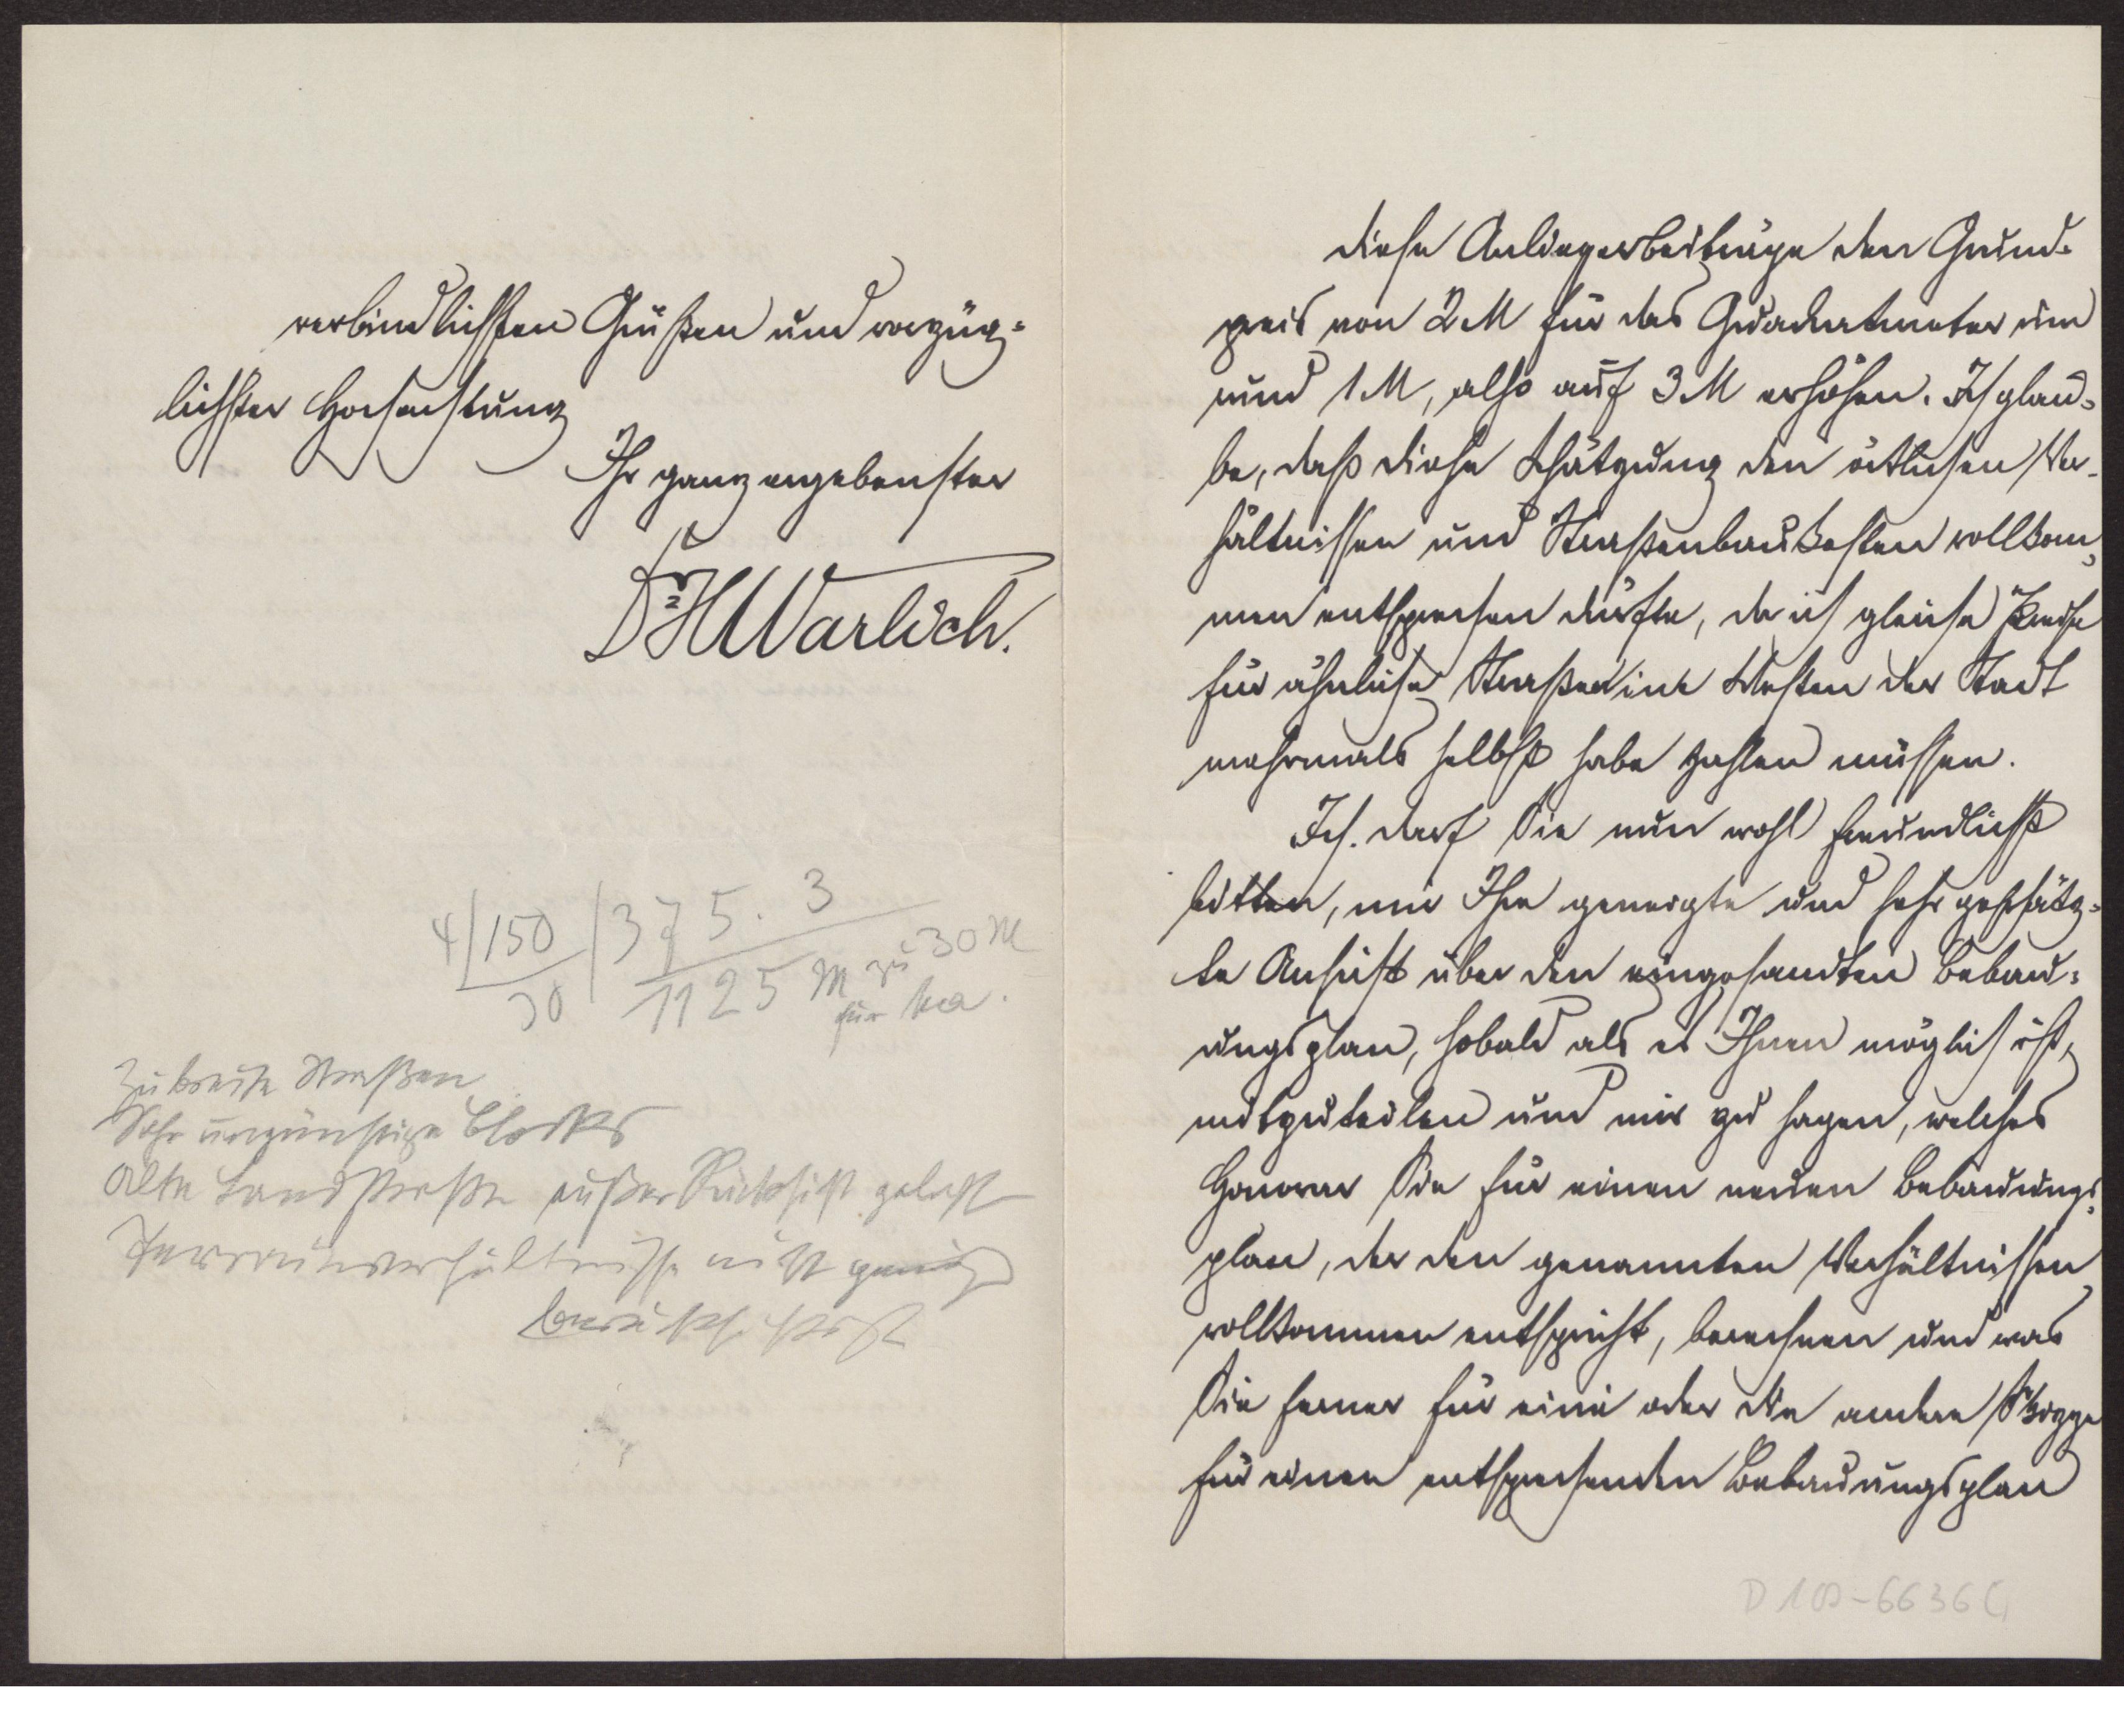 verbindlichsten Grüßen und vorzüg=
lichster Hochachtung
Ihr ganz ergebenster
Dr H Warlich.
4/150/375. 3
30 1125 M zu 30 M
für ha.
Zu breite Straßen
Sehr ungünstige Blocks
Alte Landstraße außer Rücksicht gelaßt
Terrainverhältnisse nicht genug
berücksichtigt
diese Anliegerbeiträge den Grund=
preis von 2 M für das Quadratmeter um
rund 1 M, also auf 3 M erhöhen. Ich glau=
be, daß diese Schätzung den örtlichen Ver=
hältnissen und Straßenbaukosten vollkom=
men entsprechen dürfte, da ich gleiche Preise
für ähnliche Straßen im Westen der Stadt
mehrmals selbst habe zahlen müssen.
Ich darf Sie nun wohl freundlichst
bitten, mir Ihre geneigte und sehr geschätz=
te Ansicht über den eingesandten Bebau=
ungsplan, sobald als es Ihnen möglich ist,
mitzuteilen und mir zu sagen, welches
Honorar Sie für einen neuen Bebauungs=
plan, der den genannten Verhältnissen
vollkommen entspricht, berechnen und was
Sie ferner für eine oder die andere Skizze
für einen entsprechenden Bebauungsplan